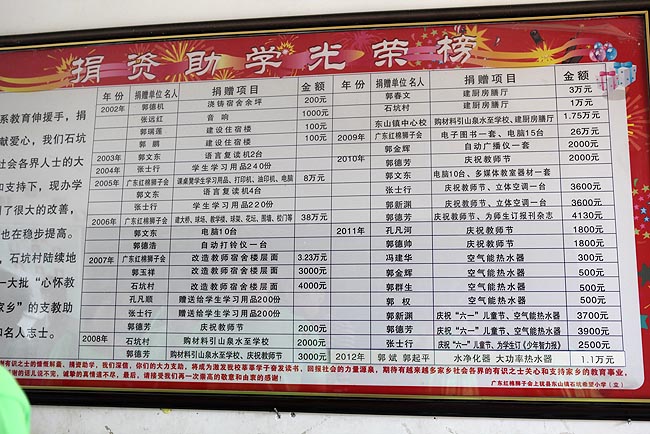 捐资助学光荣榜
系教育伸援手，捐
献爱心，我们石坑
社会各界人士的大
和支持下，现办学
到了很大的改善，
也在稳步提高。
石坑村陆续地
一大批“心怀教
家乡”的支教助
和名人志士。
年份 捐赠单位名人 捐赠项目 金额
2002年 郭德机 浇铸宿舍余坪 200元
张远红 音响 1000元
郭瑞莲 建设住宿楼 100元
郭鹏 建设住宿楼 100元
2003年 郭文东 语言复读机2台
2004年 张士行 学生学习用品240份
2005年 广东红棉狮子会 课桌凳学生学习用品、打印机、油印机、电脑 8万元
郭文东 语言复读机4台
张士行 学生学习用品220份
2006年 广东红棉狮子会 建大桥、球场、教学楼、球架、花坛、围墙、校门等 38万元
郭文东 电脑10台
郭德浩 自动打铃仪一台
2007年 广东红棉狮子会 改造教师宿舍楼层面 3.23万元
郭玉祥 改造教师宿舍楼层面 3000元
石坑村 改造教师宿舍楼层面 4000元
孔凡顺 赠送给学生学习用品200份
张士行 赠送给学生学习用品200份
郭德芳 庆祝教师节 2000元
2008年 石坑村 购材料引山泉水至学校 2000元
郭德芳 购材料引山泉水至学校、庆祝教师节 3000元
年份 捐赠单位名人 捐赠项目 金额
郭春文 建厨房膳厅 3万元
石坑村 建厨房膳厅 1万元
东山镇中心校 购材料引山泉水至学校、建厨房膳厅 1.75万元
2009年 广东红棉狮子会 电子图书一套、电脑15台 26万元
郭金辉 自动广播仪一套 2000元
2010年 郭德芳 庆祝教师节 2000元
郭文东 电脑10台、多媒体教室器材一套
张士行 庆祝教师节、立体空调一台 3600元
郭新渊 庆祝教师节、立体空调一台 3600元
郭德芳 庆祝教师节、为师生订报刊杂志 4130元
2011年 孔凡河 庆祝教师节 1800元
郭德帅 庆祝教师节 1800元
冯建华 空气能热水器 300元
郭金辉 空气能热水器 500元
郭群生 空气能热水器 500元
郭权 空气能热水器 500元
郭新渊 庆祝“六一”儿童节、空气能热水器 3700元
郭德芳 庆祝“六一”儿童节、空气能热水器 3900元
张士行 庆祝“六一”儿童节、为学生订《少年智力报》 2500元
2012年 郭斌 郭起平 水净化器 大功率热水器 1.1万元
谢有识之士的慷慨解囊、捐资助学，我们深信，你们的大力支助，将成为激发我校莘莘学子奋发读书，回报社会的力量源泉，期待有越来越多家乡社会各界的有识之士关心和支持家乡的教育事业，
感谢的话儿说不完，诚挚的真情道不尽，最后，请接受我们再一次崇高的敬意和由衷的感谢！
广东红棉狮子会上犹县东山镇石坑希望小学（立）